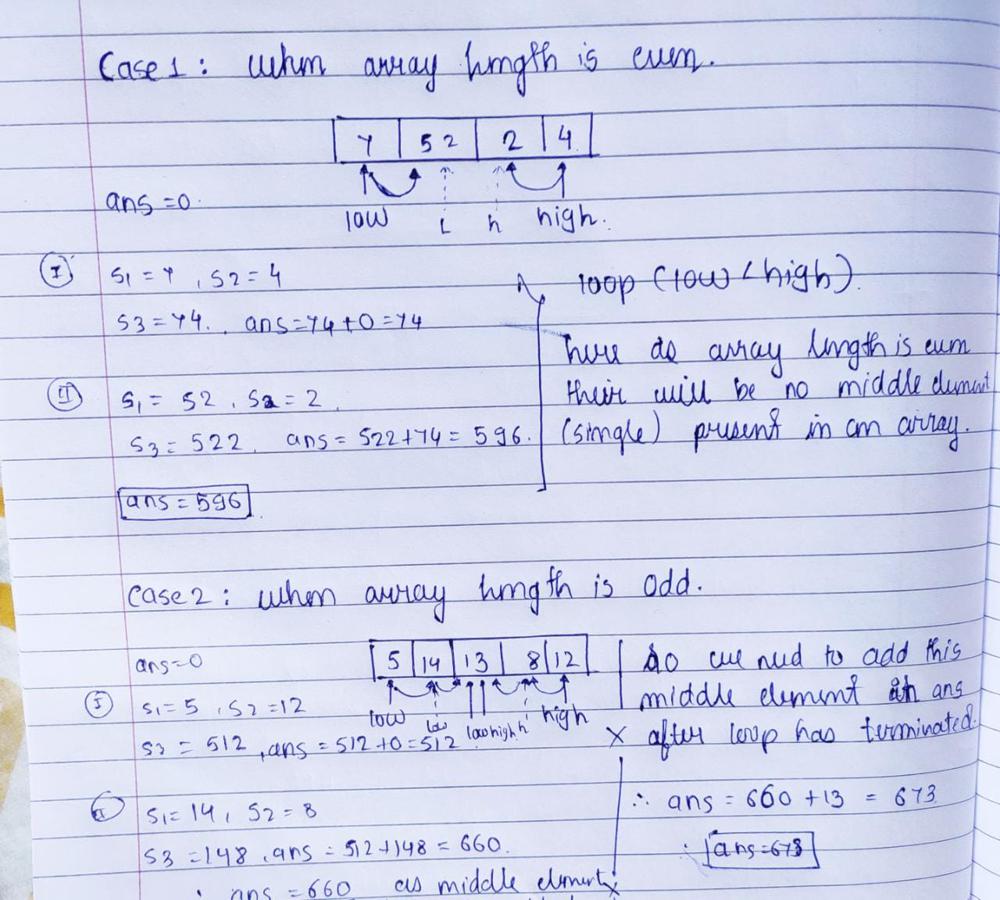 Case 1 : when array length is even.
7 52 2 4
ans = 0
low L h high.
I S1 = 7 , S2 = 4
loop (low < high).
S3 = 74. ans = 74 + 0 = 74
here as array length is even
II S1 = 52 , S2 = 2
their will be no middle element
S3 = 522 , ans = 522 + 74 = 596.
(single) present in an array.
ans = 596
Case 2 : when array length is odd.
ans = 0
5 14 13 8 12
so we need to add this
I S1 = 5 , S2 = 12
low low low high h high
middle element in ans
S3 = 512 , ans = 512 + 0 = 512
x after loop has terminated.
II S1 = 14 , S2 = 8
∴ ans = 660 + 13 = 673
S3 = 148 , ans = 512 + 148 = 660.
ans = 673
ans = 660 as middle element x